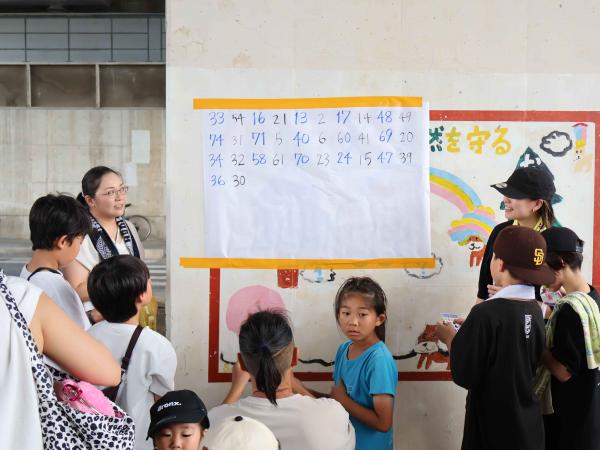 33 54 16 21 13 2 17 14 48 49
74 31 71 5 40 6 60 41 69 20
34 32 58 61 70 23 24 15 47 39
36 30
を守る
SD
Bronx.